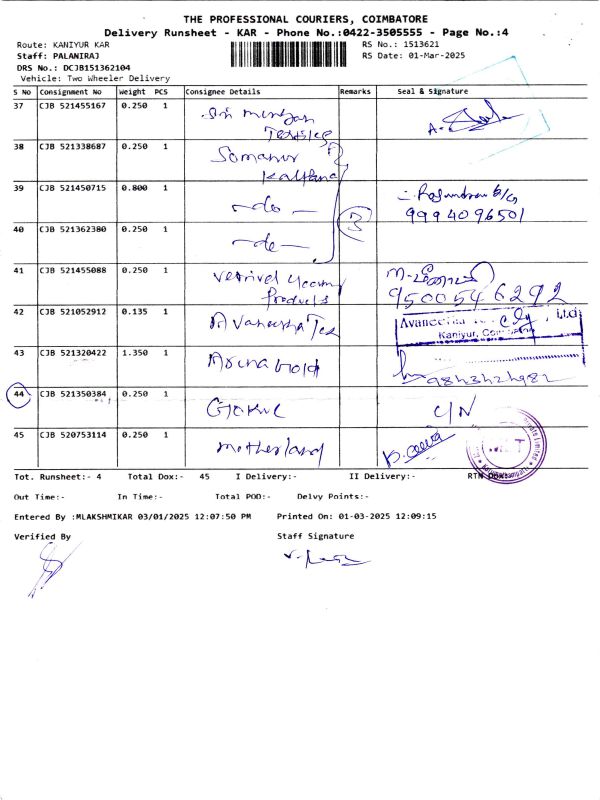 THE PROFESSIONAL COURIERS, COIMBATORE
Delivery Runsheet - KAR - Phone No.:0422-3505555 - Page No.:4
Route: KANIYUR KAR RS No.: 1513621
Staff: PALANIRAJ RS Date: 01-Mar-2025
DRS No.: DCJB151362104
Vehicle: Two Wheeler Delivery
S No Consignment No Weight PCS Consignee Details Remarks Seal & Signature
37 CJB 521455167 0.250 1 Sri
38 CJB 521338687 0.250 1 Somanur
Kalpana
39 CJB 521450715 0.800 1 -do-
9994096501
40 CJB 521362380 0.250 1 -do-
3
41 CJB 521455088 0.250 1 Vetrivel
Products 9500546292
42 CJB 521052912 0.135 1 Tex
Ltd
Kaniyur,
43 CJB 521320422 1.350 1 Aruna Gold
44 CJB 521350384 0.250 1 Gokul C/N
45 CJB 520753114 0.250 1 Motherland
Tot. Runsheet:- 4 Total Dox:- 45 I Delivery:- II Delivery:- RTN Dox:-
Out Time:- In Time:- Total POD:- Delvy Points:-
Entered By :MLAKSHMIKAR 03/01/2025 12:07:50 PM Printed On: 01-03-2025 12:09:15
Verified By Staff Signature